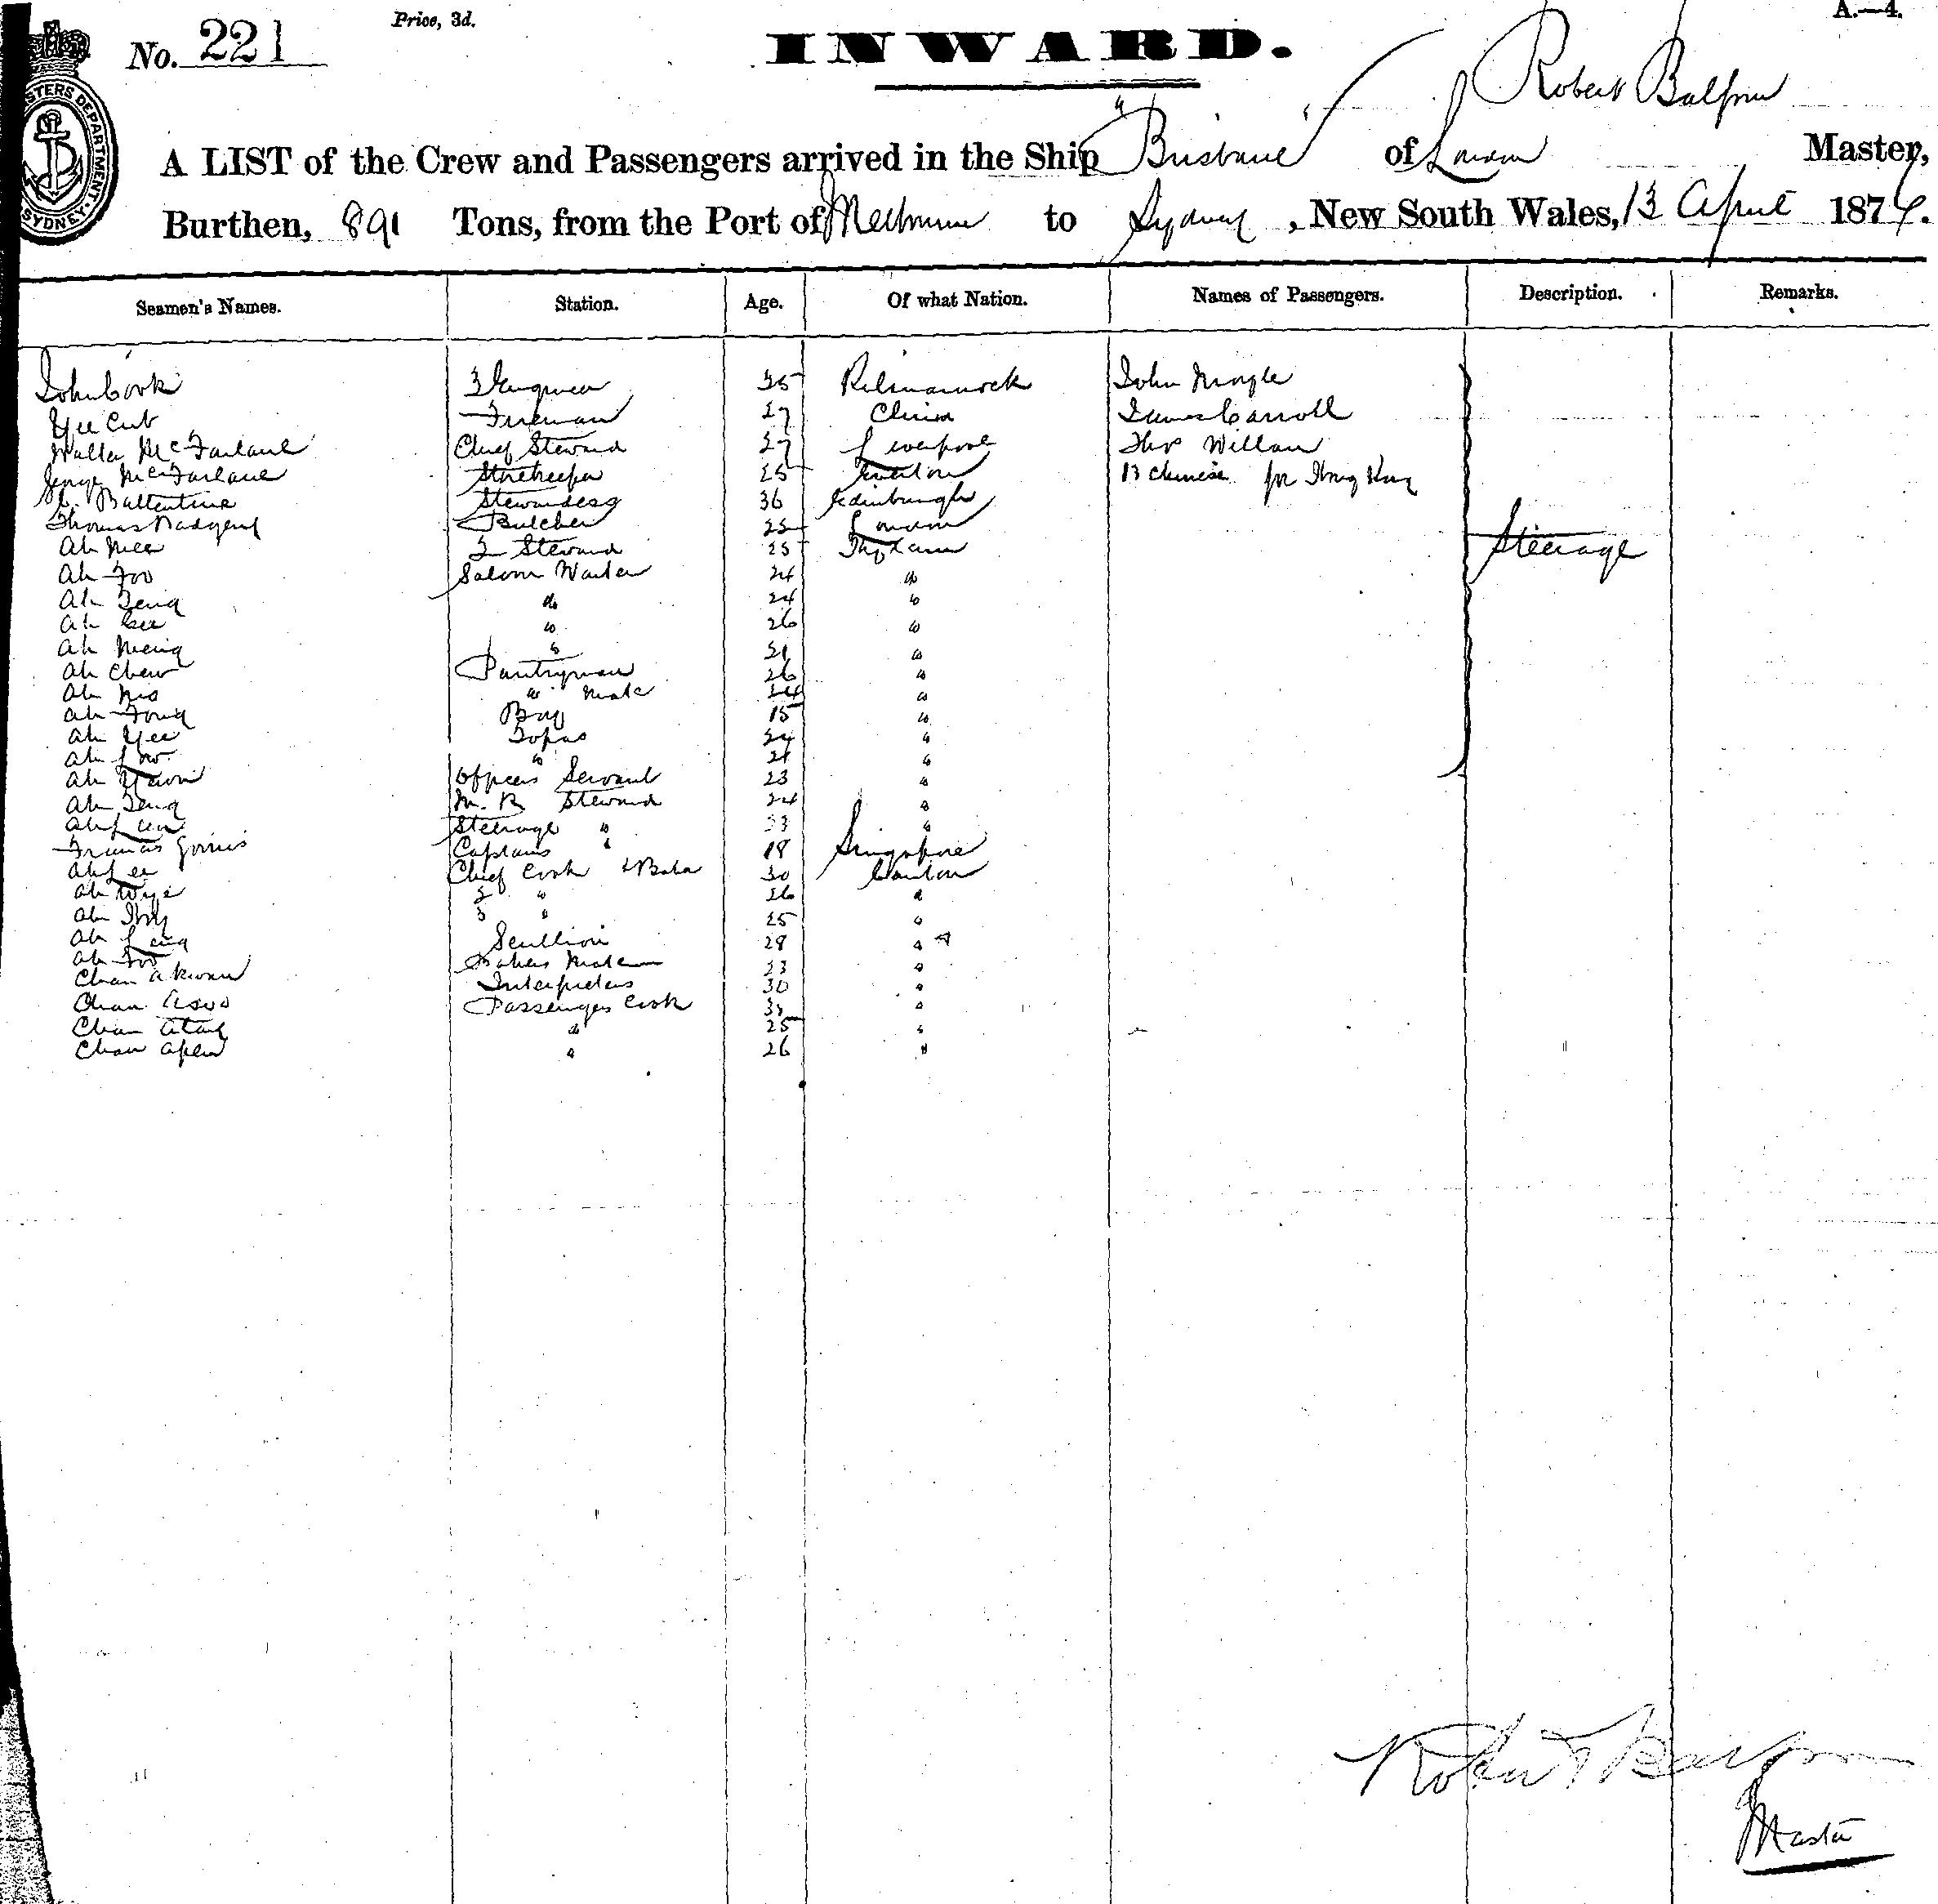 No. 221
Price, 3d.
INWARD.
A.—4.
STERS DEPARTMENT. SYDNEY.
Robert Balfour
A LIST of the Crew and Passengers arrived in the Ship "Brisbane" of London Master,
Burthen, 891 Tons, from the Port of Melbourne to Sydney, New South Wales, 13 April 1874.
Seamen's Names. Station. Age. Of what Nation. Names of Passengers. Description. Remarks.
John Cook 3 Engineer 35 Kilmarnock John Mingle
Yee Cut Fireman 27 China James Carroll
Walter McFarlane Chief Steward 27 Liverpool Thos Willan
George McFarlane Storekeeper 25 13 Chinese for Hong Kong
Ballentine Stewardess 36 Edinburgh
Thomas Butcher 25 London
Ah Mee 2 Steward 25 Steerage
Ah Foo Saloon Waiter 24 do
Ah do 24 do
Ah Gee do 26 do
Ah do 21 do
Ah Chew Pantryman 26 do
Ah do Mate 24 do
Ah Fong Boy 15 do
Ah Yee Topas 24 do
Ah Low do 21 do
Ah Officers Servant 23 do
Ah M. R. Steward 24 do
Ah Steerage do 33 do
Francis Captains do 18 Singapore
Ah Lee Chief Cook & Baker 30 Canton
Ah 2 do 26 do
Ah 3 do 25 do
Ah Scullion 28 do
Ah Foo Bakers Mate 23 do
Chan Akwan Interpreters 30 do
Chan Passengers Cook 38 do
Chan do 25 do
Chan do 26 do
Robert Balfour
Master